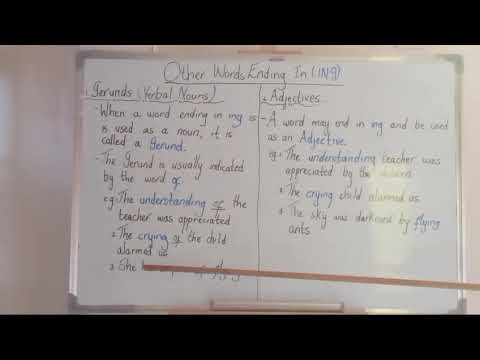 Other Words Ending In (ING)
Gerunds (Verbal Nouns)
- When a word ending in ing is
is used as a noun, it is
called a Gerund.
- The Gerund is usually indicated
by the word of
eg: The understanding of the
teacher was appreciated
2. The crying of the child
alarmed us
3. She
2. Adjectives
- A word may end in ing and be used
as an Adjective.
eg: The understanding teacher was
appreciated by the
2. The crying child alarmed us
3. The sky was darkened by flying
ants